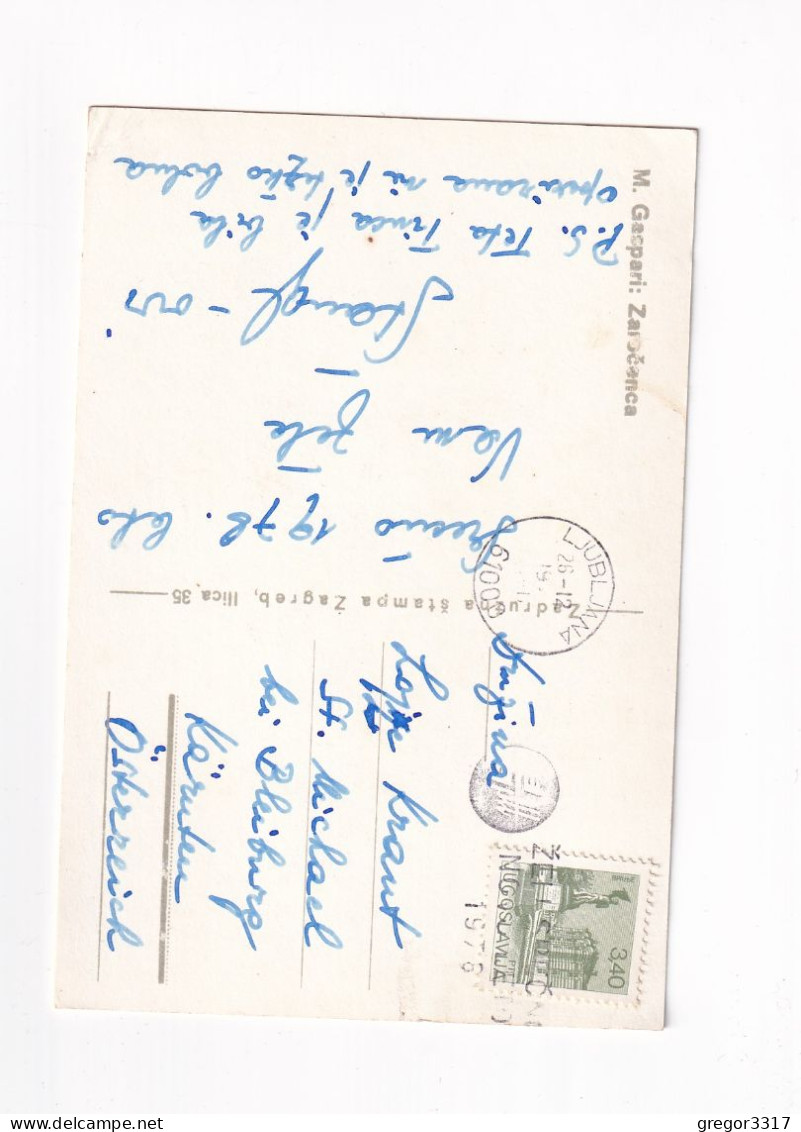 M. Gaspari: Zaročenca
P.S. Teta Tinca je bila
operirana in je težko bolna
Srečno 1978. leto
Vam želi
Stangl-ovi
Zadružna štampa Zagreb, Ilica 35
LJUBLJANA
26-12
19
61000
Družina
Lojze Kraut
St. Michael
bei Bleiburg
Kärnten
Österreich
1978
JUGOSLAVIJA
3,40
gregor3317